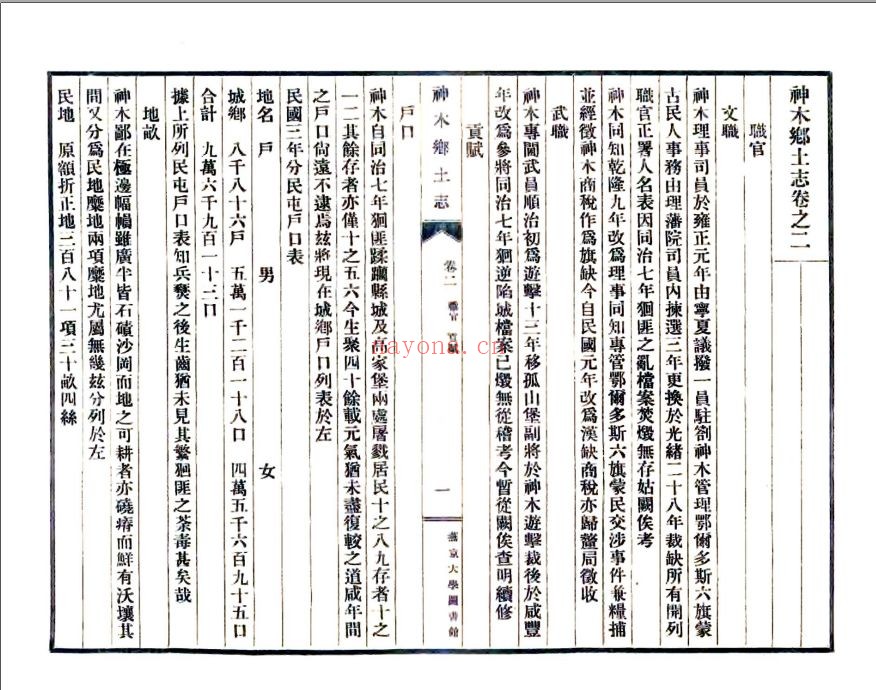 神木鄉土志卷之二
職官
文職
神木理事司員於雍正元年由寧夏議撥一員駐劄神木管理鄂爾多斯六旗蒙
古民人事務由理藩院司員內揀選三年更換於光緒二十八年裁缺所有開列
職官正署人名表因同治七年狪匪之亂檔案焚燬無存姑闕俟考
神木同知乾隆九年改爲理事同知專管鄂爾多斯六旗蒙民交涉事件兼糧捕
並經徵神木商稅作爲旗缺今自民國元年改爲漢缺商稅亦歸釐局徵收
武職
神木專閫武員順治初爲遊擊十三年移孤山堡副將於神木遊擊裁後於咸豐
年改爲參將同治七年狪逆陷城檔案已燬無從稽考今暫從闕俟查明續修
貢賦
神木鄉土志
卷二 職官 貢賦
一
燕京大學圖書館
nayona.cn
戶口
神木自同治七年狪匪蹂躪縣城及高家堡兩處屠戮居民十之八九存者十之
一二其餘存者亦僅十之五六今生聚四十餘載元氣猶未盡復較之道咸年間
之戶口尙遠不逮焉茲將現在城鄉戶口列表於左
民國三年分民屯戶口表
地名 戶 男 女
城鄉 八千八十六戶 五萬一千二百一十八口 四萬五千六百九十五口
合計 九萬六千九百一十三口
據上所列民屯戶口表知兵燹之後生齒猶未見其繁狪匪之荼毒甚矣哉
地畝
神木鄙在極邊幅幀雖廣半皆石磧沙岡而地之可耕者亦磽瘠而鮮有沃壤其
間又分爲民地糜地兩項糜地尤屬無幾茲分列於左
民地 原額折正地二百八十一項三十畝四絲